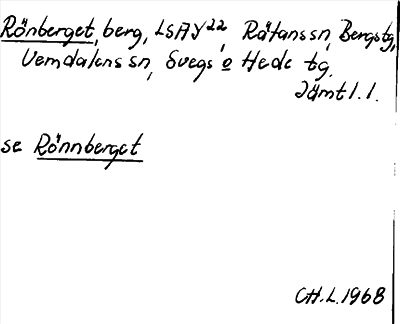 Rönberget, berg, LSAY22, Rätans sn, Bergs tg,
Vemdalens sn, Svegs o Hede tg.
Jämtl. l.
se Rönnberget
CH.L. 1968